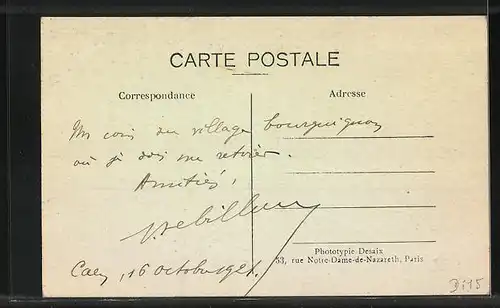 CARTE POSTALE
Correspondance
Adresse
Un coin du village bourguignon
où je dois me retirer.
Amitiés,
Caen, 16 octobre 1921.
Phototypie Desaix
33, rue Notre-Dame-de-Nazareth, Paris
Di15